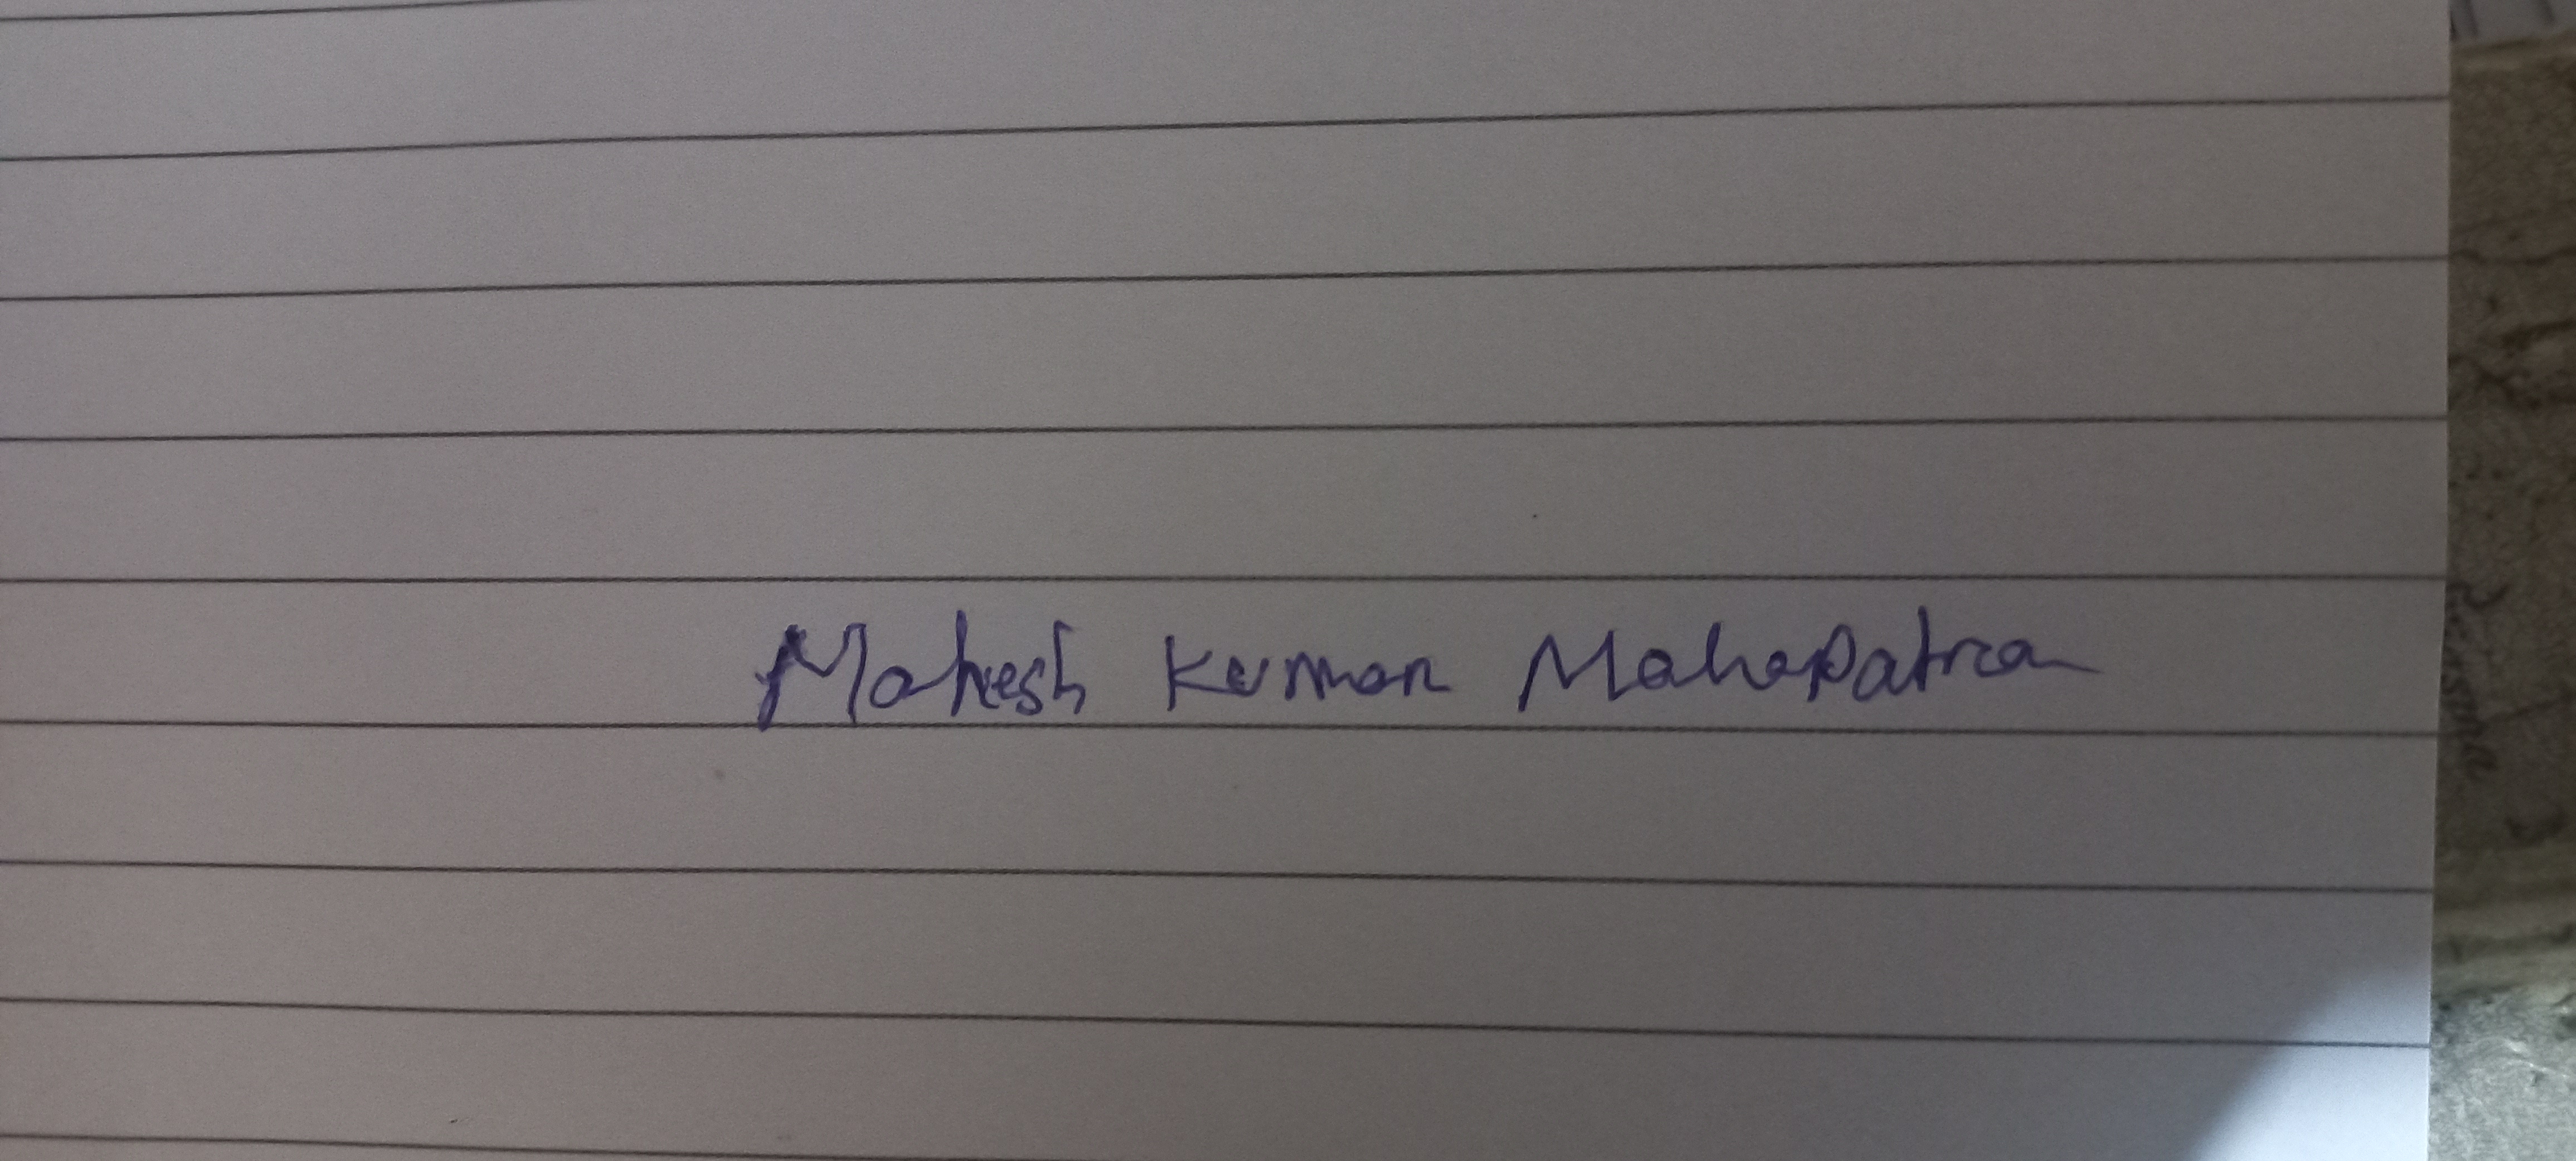 Mahesh Kumar Mahapatra